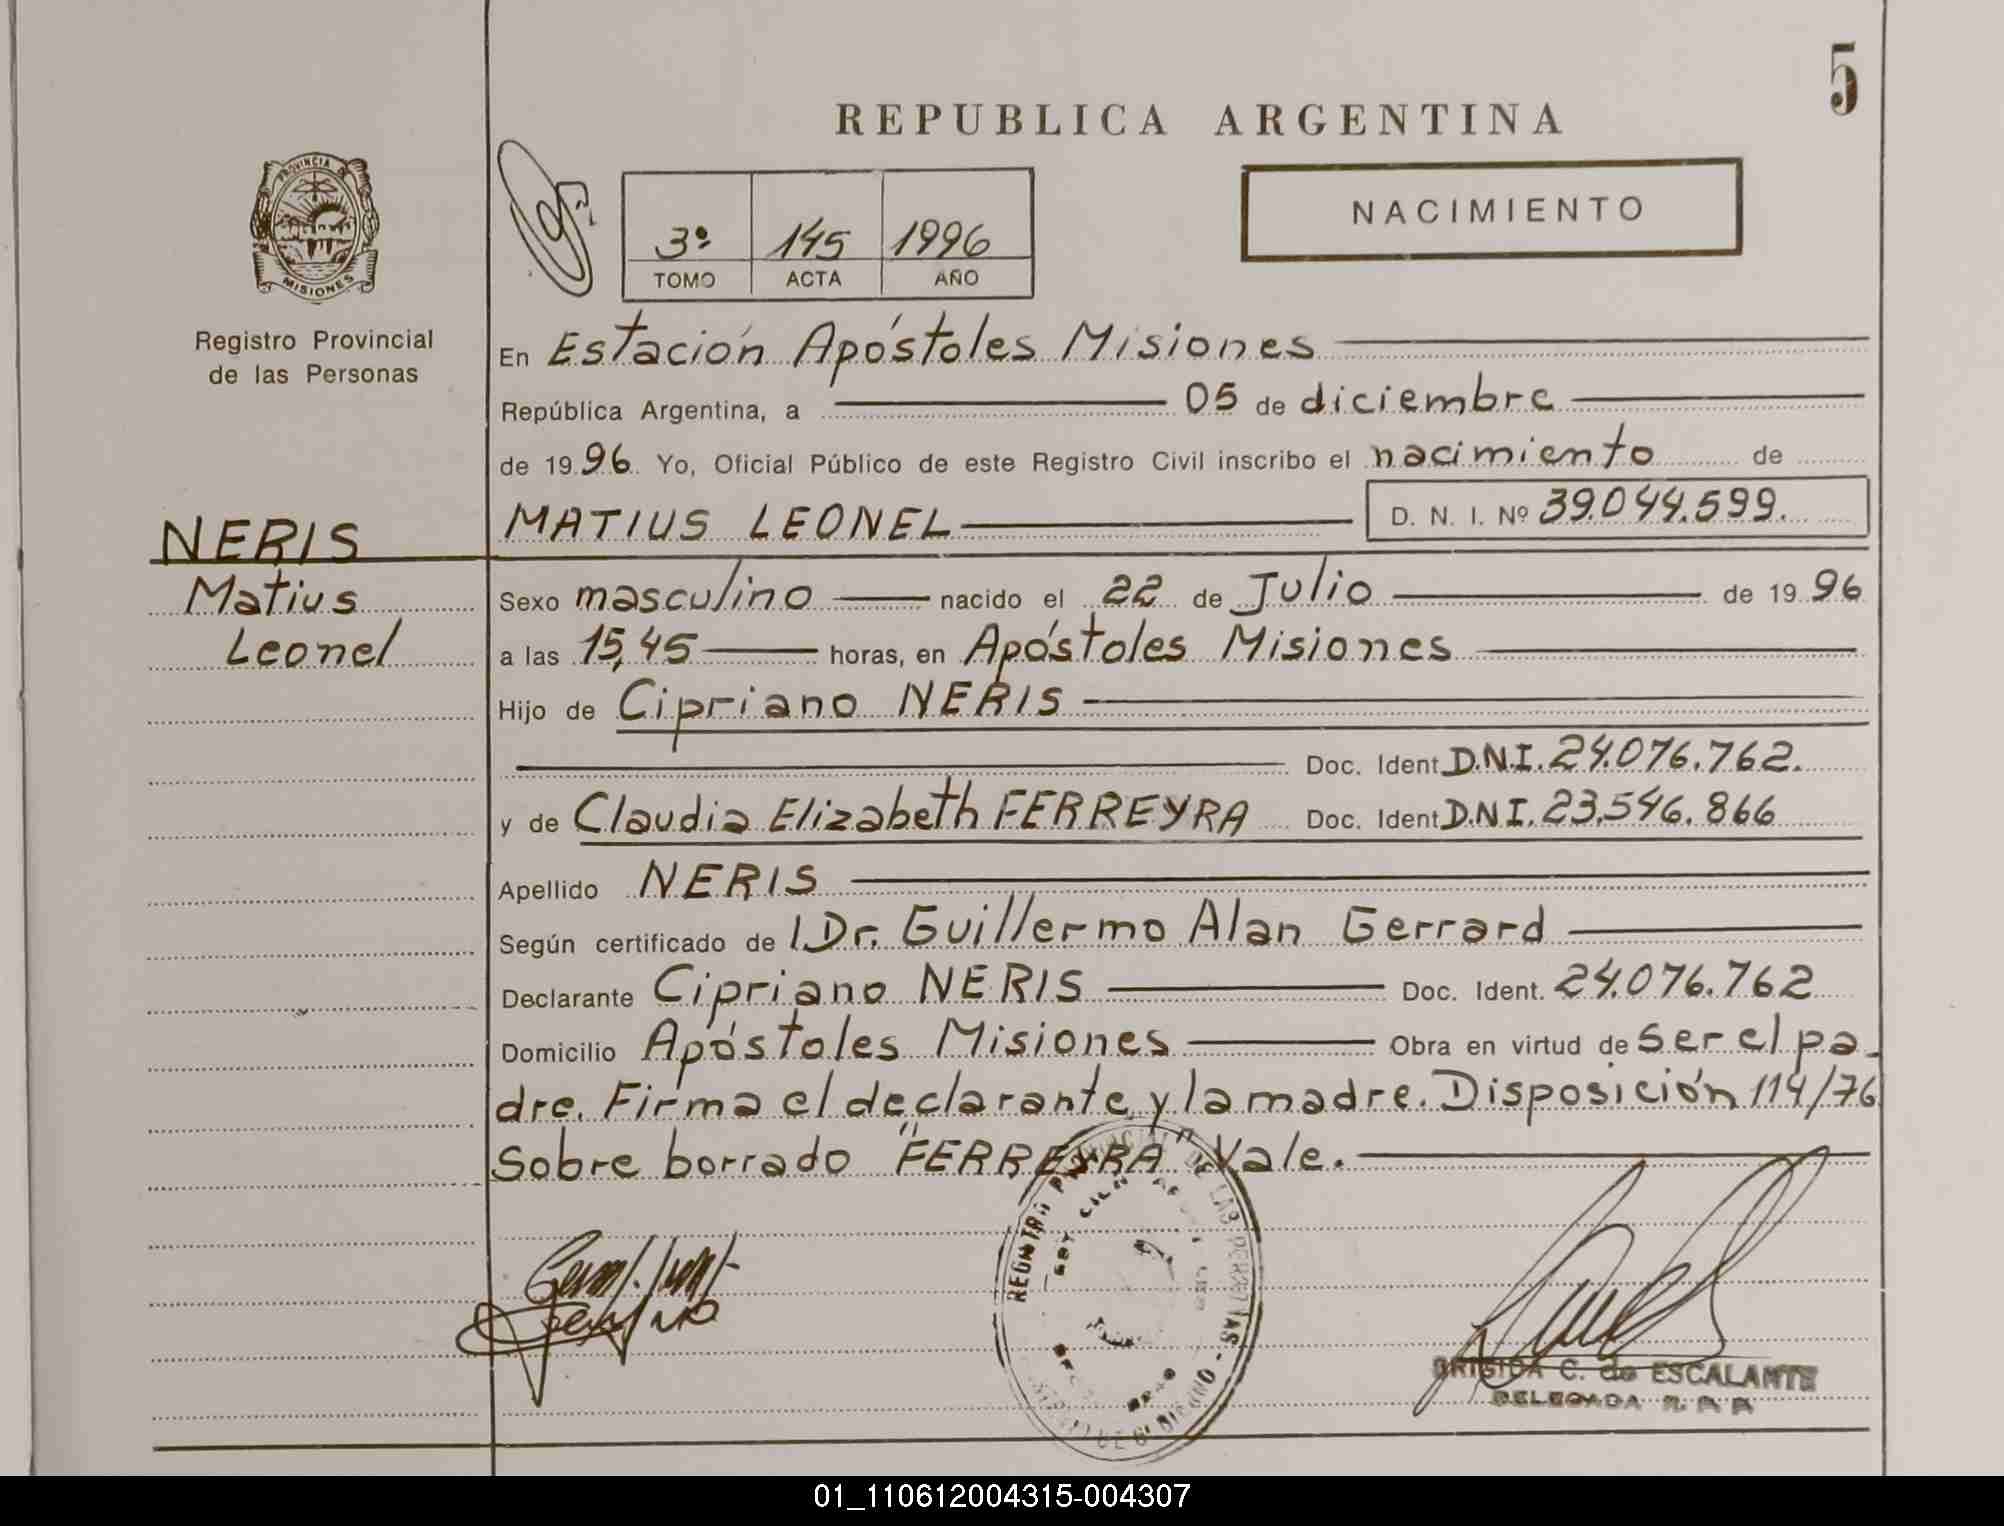 5
REPUBLICA ARGENTINA
PROVINCIA DE
MISIONES
Registro Provincial
de las Personas
3º 145 1996
TOMO ACTA AÑO
NACIMIENTO
En Estación Apóstoles Misiones
República Argentina, a 05 de diciembre
de 1996 Yo, Oficial Público de este Registro Civil inscribo el nacimiento de
MATIUS LEONEL D. N. I. Nº 39.044.599.
NERIS
Matius
Leonel
Sexo masculino nacido el 22 de Julio de 1996
a las 15,45 horas, en Apóstoles Misiones
Hijo de Cipriano NERIS
Doc. Ident D.N.I. 24.076.762.
y de Claudia Elizabeth FERREYRA Doc. Ident D.N.I. 23.546.866
Apellido NERIS
Según certificado de l Dr. Guillermo Alan Gerrard
Declarante Cipriano NERIS Doc. Ident. 24.076.762
Domicilio Apóstoles Misiones Obra en virtud de ser el pa-
dre. Firma el declarante y la madre. Disposición 114/76
Sobre borrado "FERREYRA" Vale.
DE LAS PERSONAS
BRIGIDA C. de ESCALANTE
DELEGADA
01_110612004315-004307